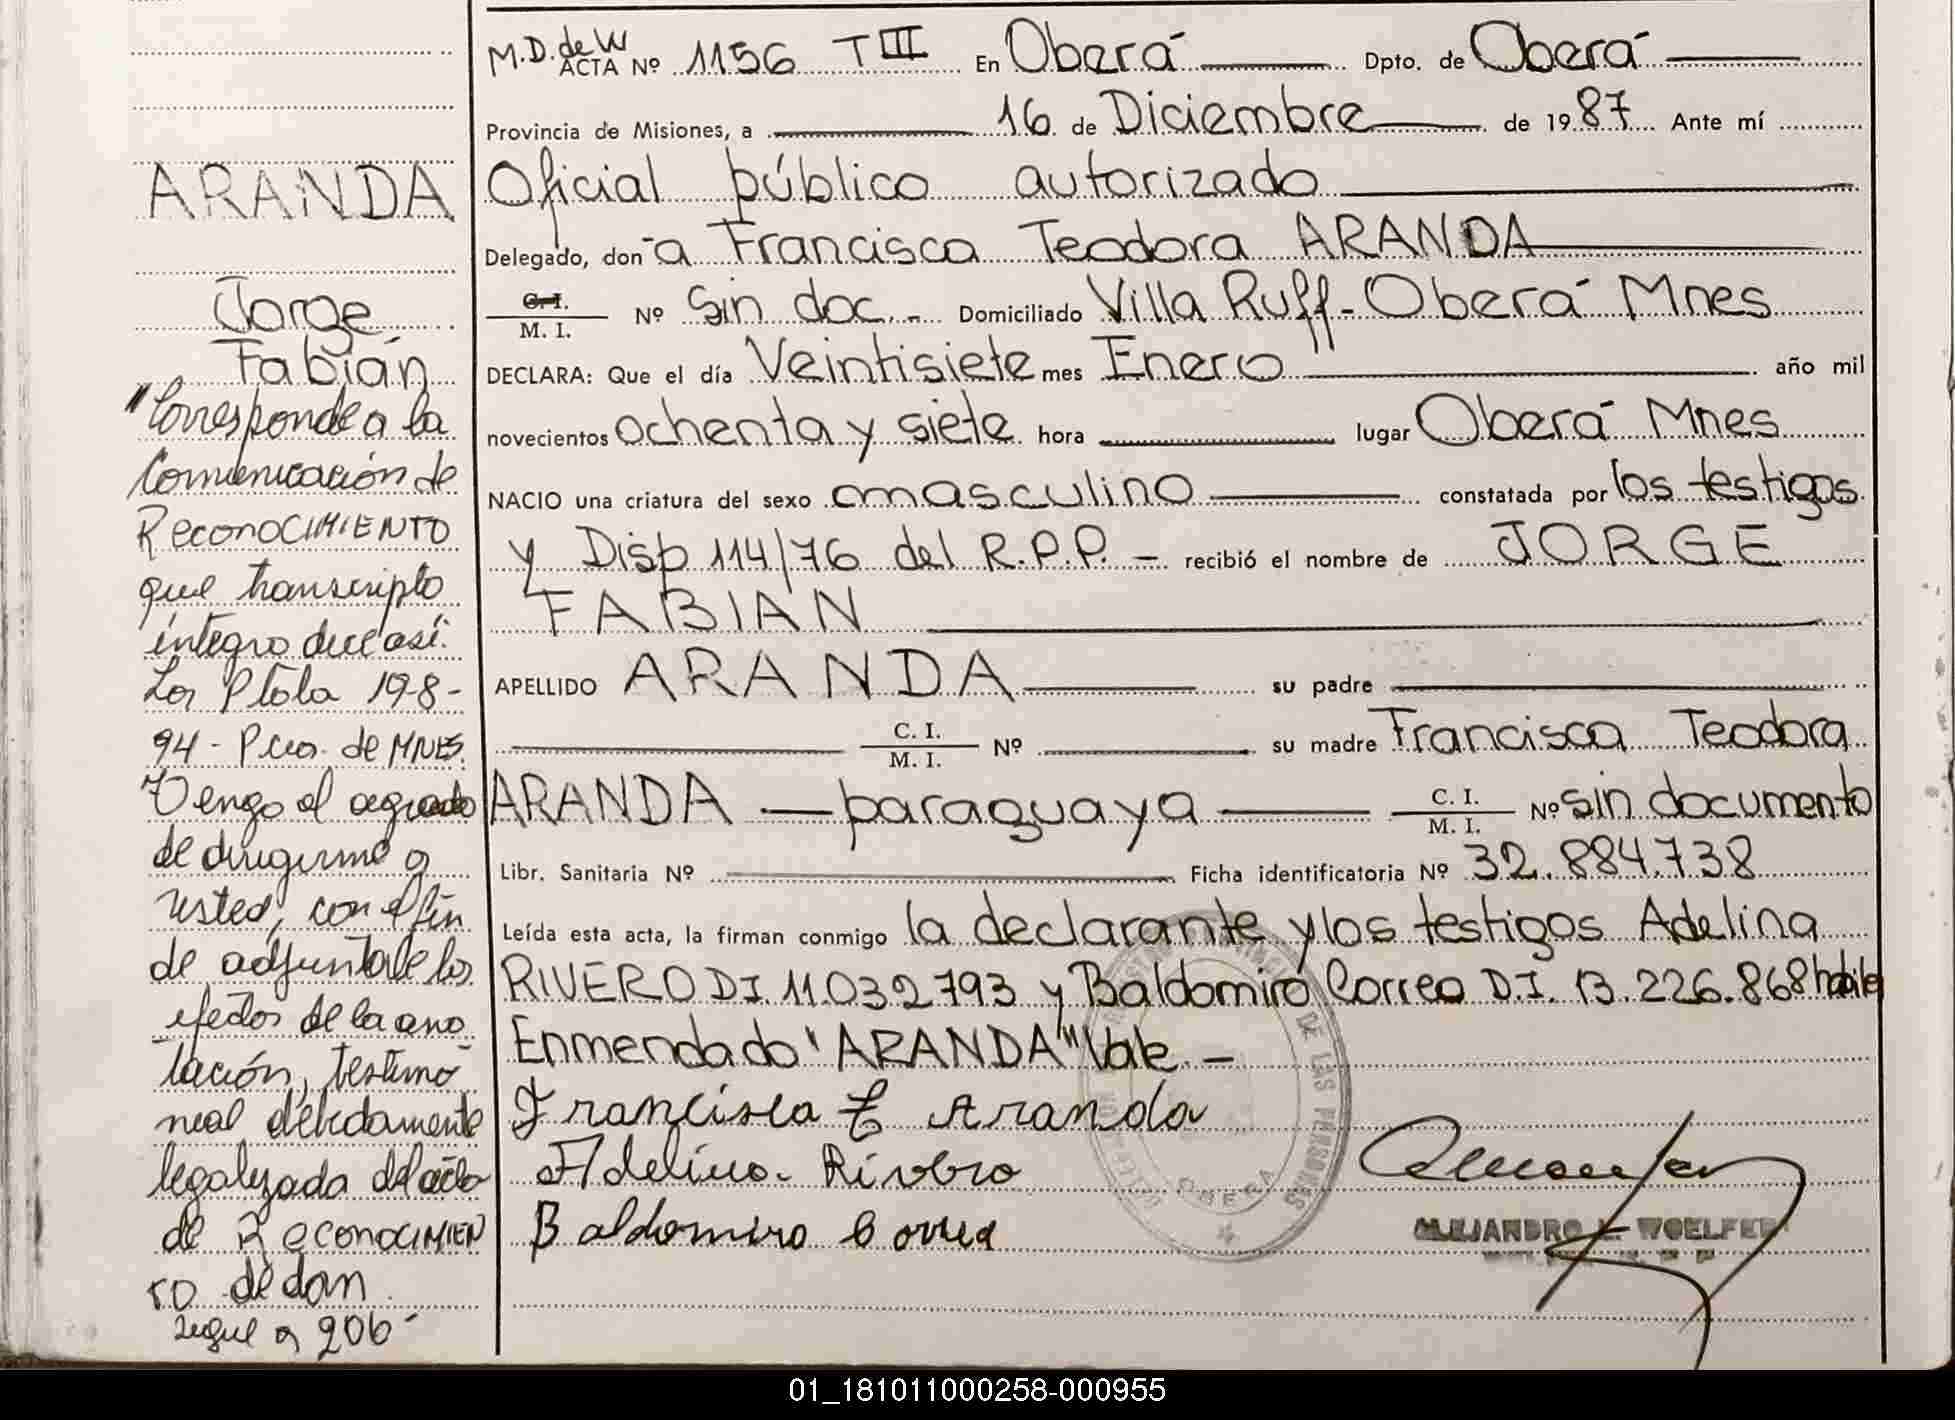 ARANDA
Jorge
Fabián
"Corresponde a la
Comunicación de
RecONOCIMIENTO
que transcripto
íntegro dice así:
Los 19-8-
94 - Pcia. de MNES.
Tengo el agrado
de dirigirme a
usted, con el fin
de adjuntale los
efectos de la ano
tación, testimo
nial debidamente
legalizada del acta
de ReconOCIMIEN
TO de dan
sigue a 206
M.D. de W
ACTA Nº 1156 TIII En Oberá Dpto. de Oberá
Provincia de Misiones, a 16 de Diciembre de 1987 Ante mí
Oficial público autorizado
Delegado, don-a Francisca Teodora ARANDA
C. I.
M. I. Nº Sin doc.- Domiciliado Villa Ruff-Oberá Mnes
DECLARA: Que el día Veintisiete mes Enero año mil
novecientos ochenta y siete hora lugar Oberá Mnes
NACIO una criatura del sexo masculino constatada por los testigos
y Disp 114/76 del R.P.P. - recibió el nombre de JORGE
FABIAN
APELLIDO ARANDA su padre
C. I.
M. I. Nº su madre Francisca Teodora
ARANDA — paraguaya — C. I.
M. I. Nº sin documento
Libr. Sanitaria Nº Ficha identificatoria Nº 32.884.738
Leída esta acta, la firman conmigo la declarante y los testigos Adelina
RIVERO DI. 11.032793 y Baldomiro Correa D.I. 13.226.868 habiles
Enmendado "ARANDA" Vale. -
Francisca T Aranda
Adelina Rivero
Baldomiro Correa
DE LAS PERSONAS
OBERA
ALEJANDRO WOELFER
01_181011000258-000955